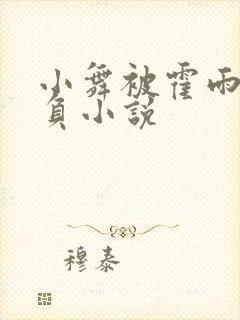 小舞被霍雨
负小说
穆泰